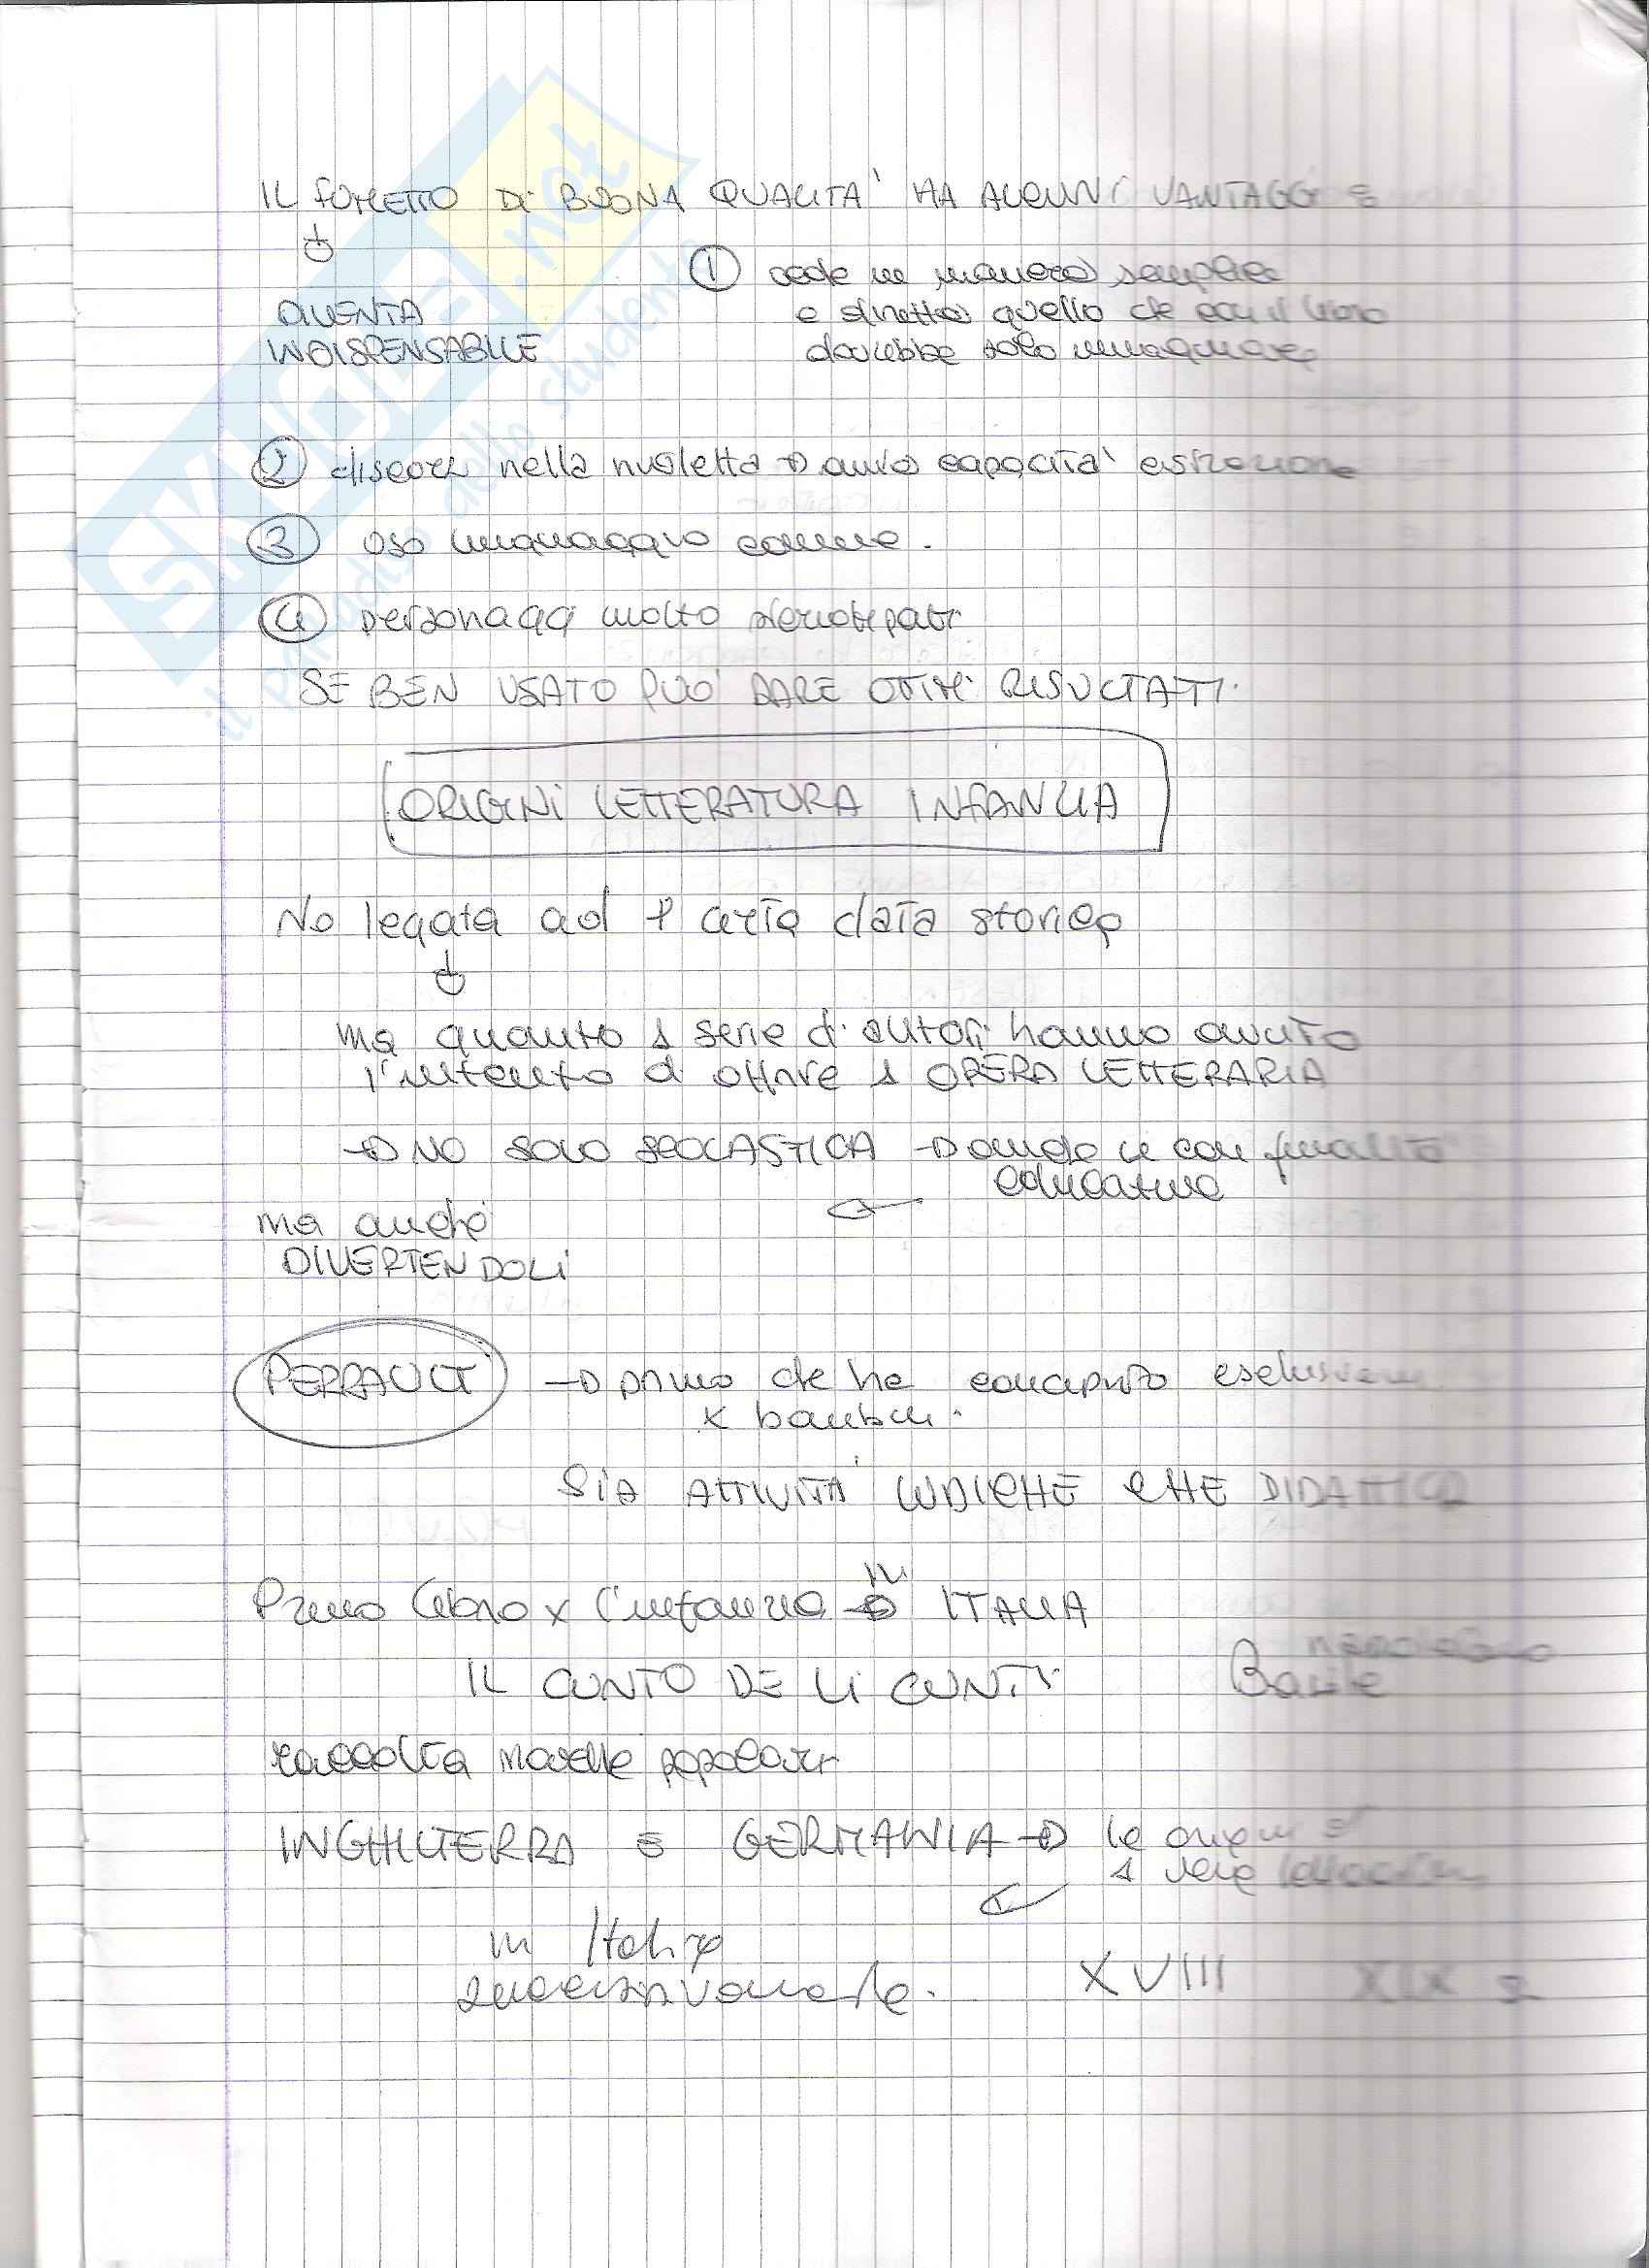 IL FUMETTO DI BUONA QUALITA' HA ALCUNI VANTAGGI:
① vede in maniera semplice
DIVENTA
e diretta quello che con il libro
INDISPENSABILE
dovrebbe solo immaginare
② discorsi nella nuvoletta → aiuta capacità
③ uso linguaggio comune.
④ personaggi molto stereotipati
SE BEN USATO PUO' DARE OTTIMI RISULTATI.
ORIGINI LETTERATURA INFANZIA
No legata ad 1 certa data storica
↓
ma quanto 1 serie di autori hanno avuto
l'intento di offrire 1 OPERA LETTERARIA
→ NO SOLO SCOLASTICA → anche se con finalità
educative
ma anche
DIVERTENDOLI
PERRAULT → primo che ha concepito
x bambini.
SIA ATTIVITA' LUDICHE CHE DIDATTICA
Primo libro x l'infanzia → in ITALIA
IL CUNTO DE LI CUNTI
napoletano
Basile
raccolta novelle popolari
INGHILTERRA E GERMANIA → le origini
1 vera
in Italia
XVIII XIX
SKUOLA.net
il paradiso dello studente